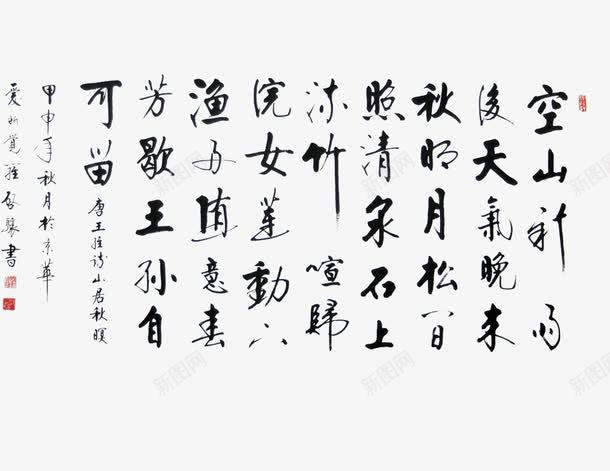 空山新雨
後天氣晚来
秋明月松间
照清泉石上
流竹喧歸
浣女莲動下
渔舟随意春
芳歇王孙自
可留
唐王维诗山居秋暝
甲申年秋月於京華
爱新覺羅启骧書
新图网